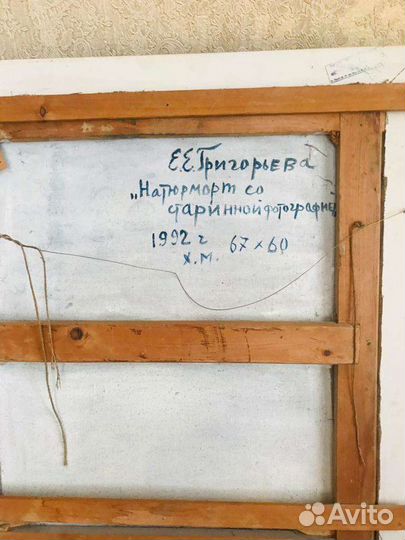 Е.Е.Григорьева
„Натюрморт со
старинной фотографией
1992 г 67×60
х.м.
Avito